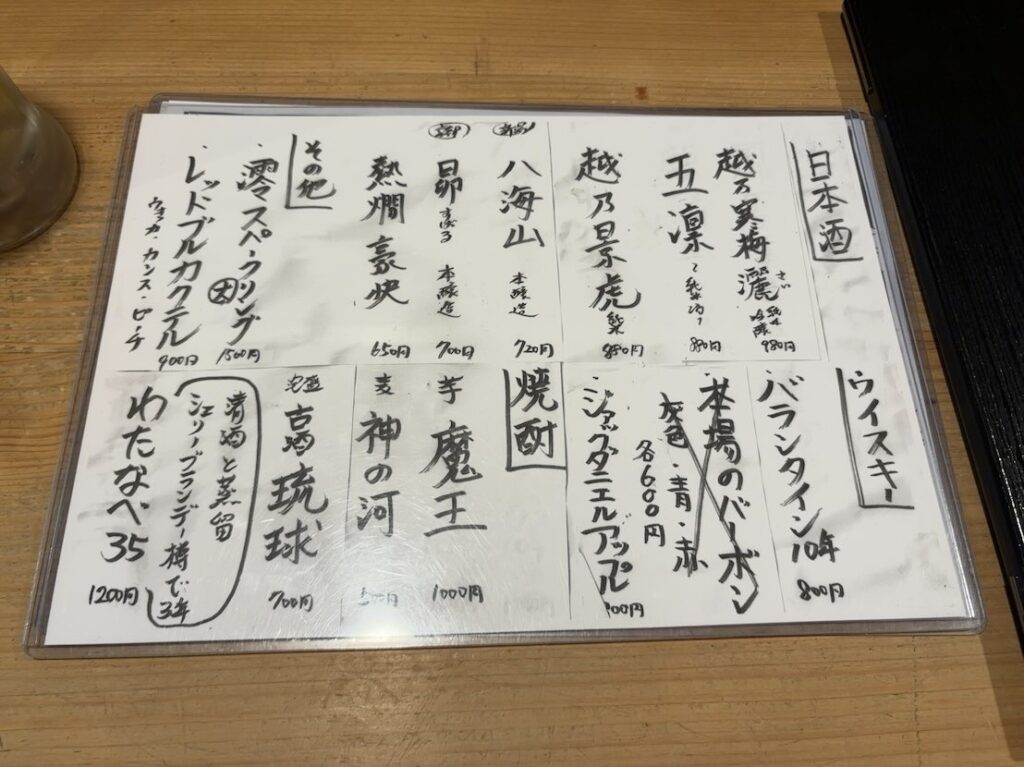 日本酒
越乃寒梅 灑 さい 純米吟醸
980円
五凛
880円
越乃景虎 純米
880円
八海山 本醸造
720円
昴 すばる 本醸造
700円
熱燗 豪快
650円
その他
・澪スパークリング 大
1500円
・レッドブルカクテル
ウォッカ・カシス・ピーチ
900円
ウイスキー
・バランタイン10年
800円
・本場のバーボン
灰色・青・赤
各600円
・ジャックダニエルアップル
焼酎
芋 魔王
1000円
麦 神の河
古酒 琉球
700円
清酒と蒸留
シェリーブランデー樽で3年
わたなべ35
1200円